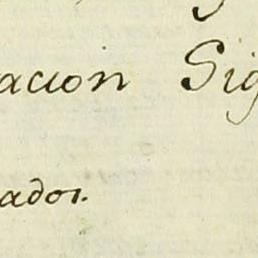 acion Sig
ados.